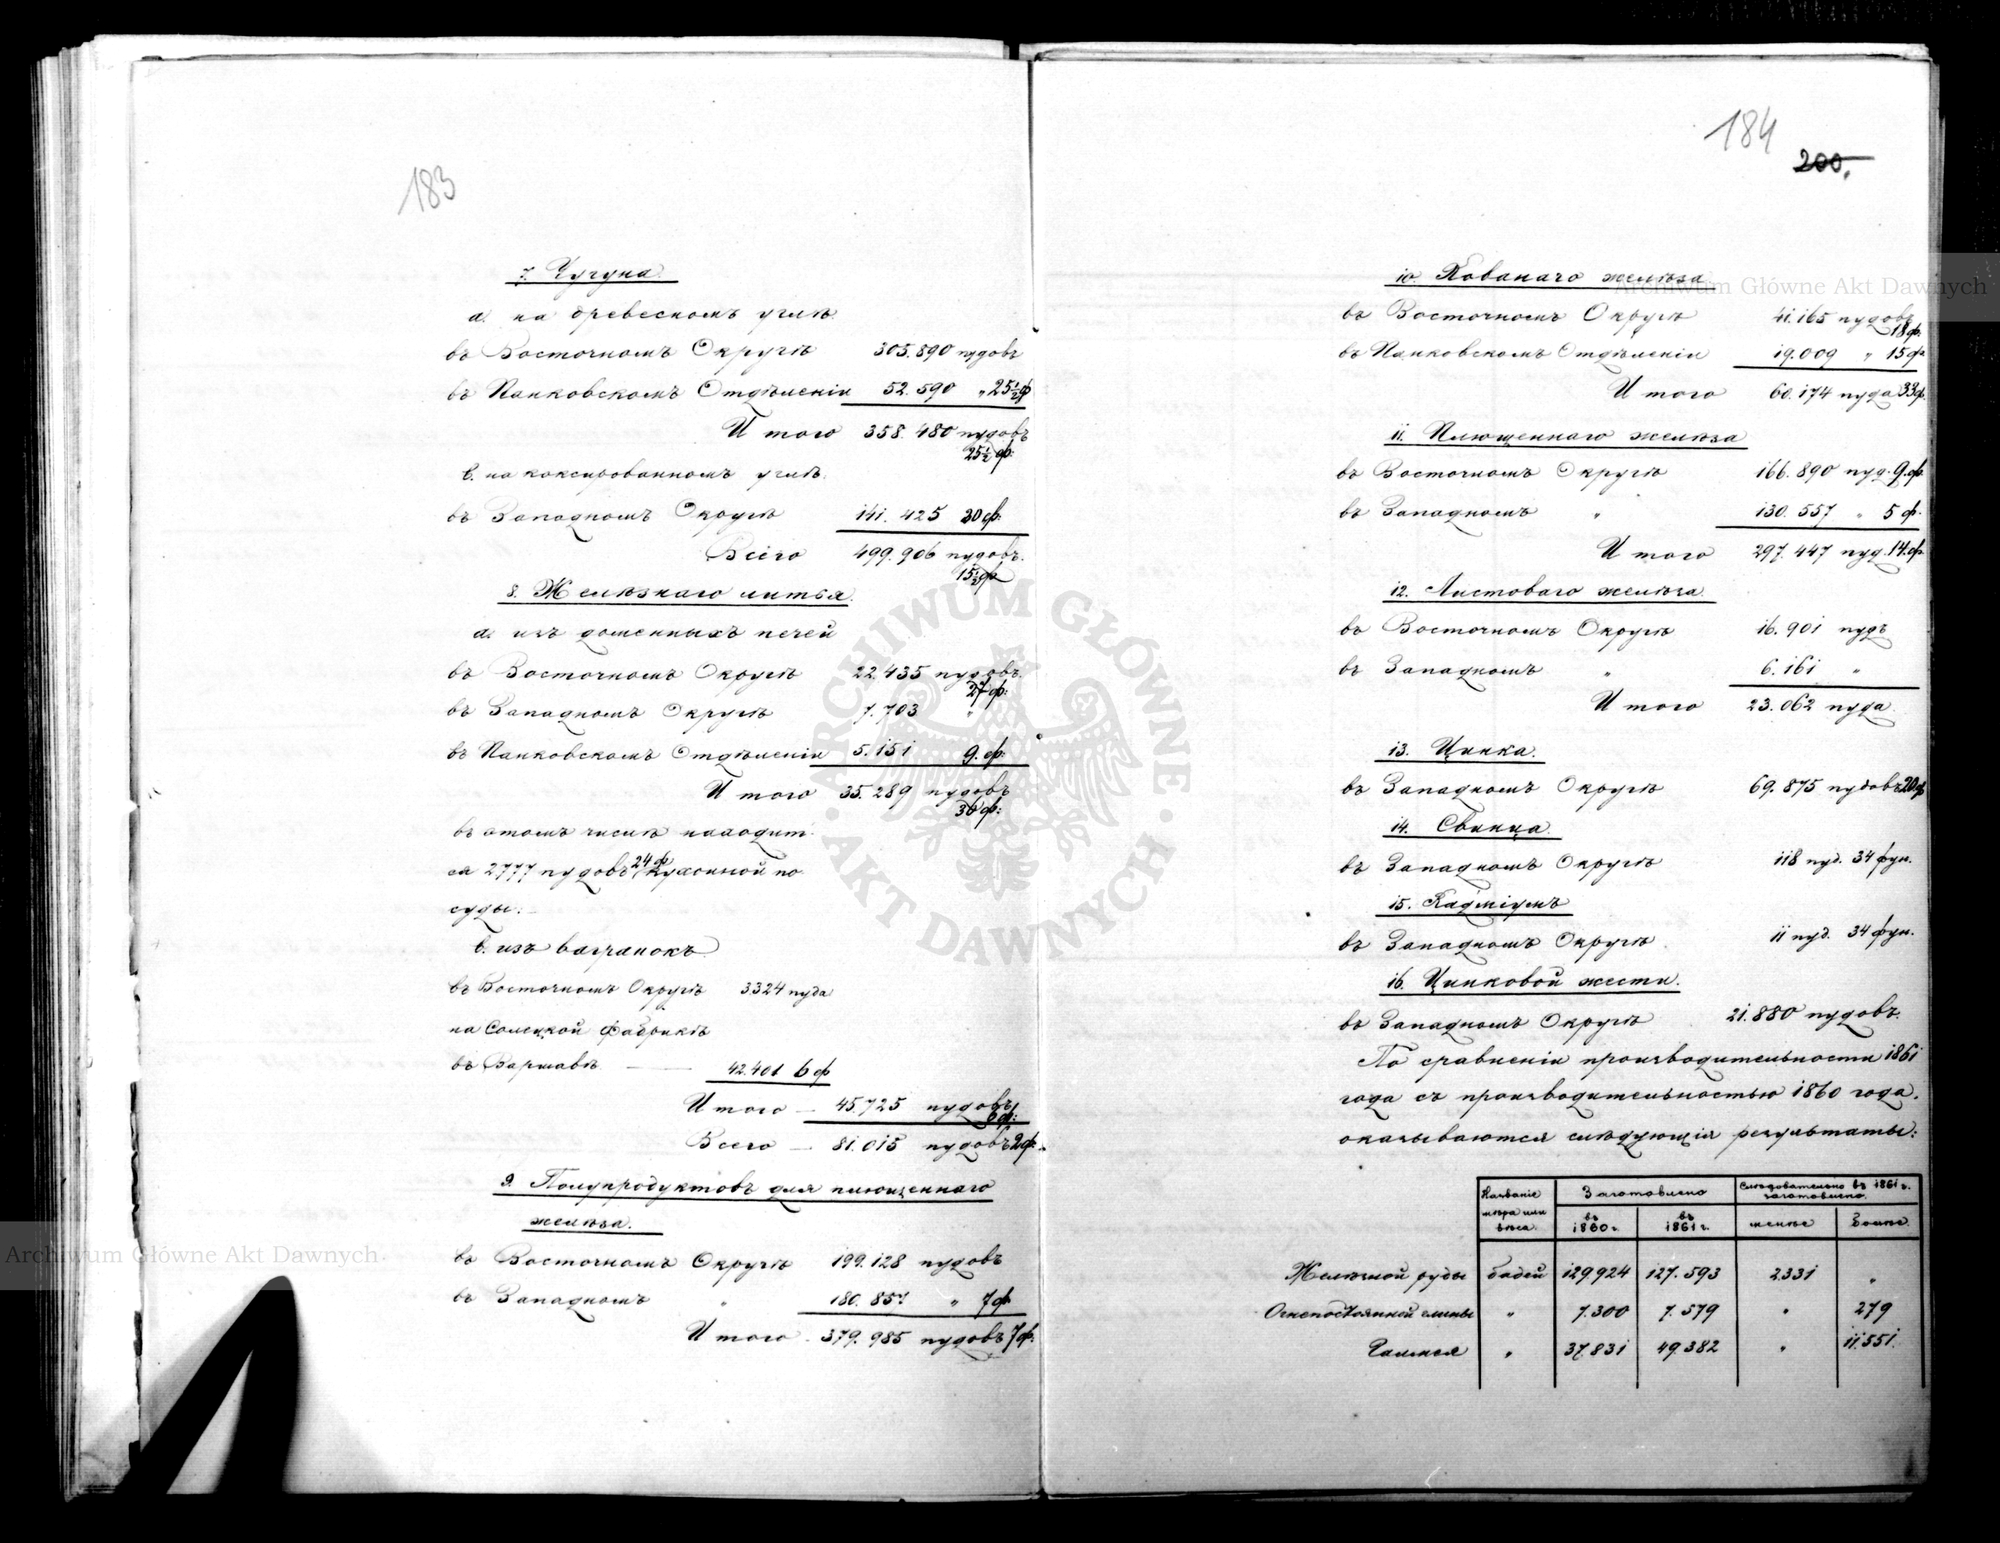 183
7. Чугуна.
а. на древесномъ углѣ.
въ Восточномъ Округѣ 305.890 пудовъ
въ Панковскомъ Отдѣленіи 52.590 „ 25½ ф
Итого 358.480 пудовъ
25½ ф.
в. на коксированномъ углѣ.
въ Западномъ Округѣ 141.425 30 ф.
Всего 499.906 пудовъ.
15½ ф
8. Желѣзнаго литья.
а. изъ доменныхъ печей
въ Восточномъ Округѣ 22.435 пудовъ.
27 ф.
въ Западномъ Округѣ 7.703 „
въ Панковскомъ Отдѣленіи 5.151 9. ф.
Итого 35.289 пудовъ
36 ф:
въ этомъ числѣ находит-
ся 2777 пудовъ 24 ф кухонной по-
суды.
в. изъ вагранокъ.
въ Восточномъ Округѣ 3324 пуда
на Солецкой Фабрикѣ
въ Варшавѣ — 42.401 6 ф
Итого — 45.725 пудовъ
6 ф:
Всего — 81.015 пудовъ 2 ф.
9. Полупродуктовъ для плющеннаго
желѣза.
въ Восточномъ Округѣ 199.128 пудовъ
въ Западномъ „ 180.857 „ 7 ф
Итого 379.985 пудовъ 7 ф.
184
200.
10. Кованаго желѣза
въ Восточномъ Округѣ 41.165 пудовъ
18 ф.
въ Панковскомъ Отдѣленіи 19.009 „ 15 ф
Итого 60.174 пуда 33 ф.
11. Плющеннаго желѣза
въ Восточномъ Округѣ 166.890 пуд. 9. ф.
въ Западномъ „ 130.557 „ 5 ф.
Итого 297.447 пуд. 14. ф
12. Листоваго желѣза.
въ Восточномъ Округѣ 16.901 пудъ
въ Западномъ „ 6.161 „
Итого 23.062 пуда.
13. Цинка.
въ Западномъ Округѣ 69.875 пудовъ 20 ф
14. Свинца.
въ Западномъ Округѣ 118 пуд. 34 фун.
15. Кадміумъ
въ Западномъ Округѣ. 11 пуд. 34 фун.
16. Цинковой жести.
въ Западномъ Округѣ 21.880 пудовъ.
По сравненіи производительности 1861
года съ производительностью 1860 года.
оказываются слѣдующія результаты:
Названіе мѣра или вѣса. Заготовлено Слѣдовательно въ 1861 г. заготовлено.
въ 1860 г. въ 1861 г. менѣе болѣе.
Желѣзной руды бадей 129924 127.593 2331 „
Огнепостоянной глины „ 7.300 7.579 „ 279
Галмея „ 37.831 49.382 „ 11.551.
Archiwum Główne Akt Dawnych
Archiwum Główne Akt Dawnych
ARCHIWUM GŁÓWNE · AKT DAWNYCH ·